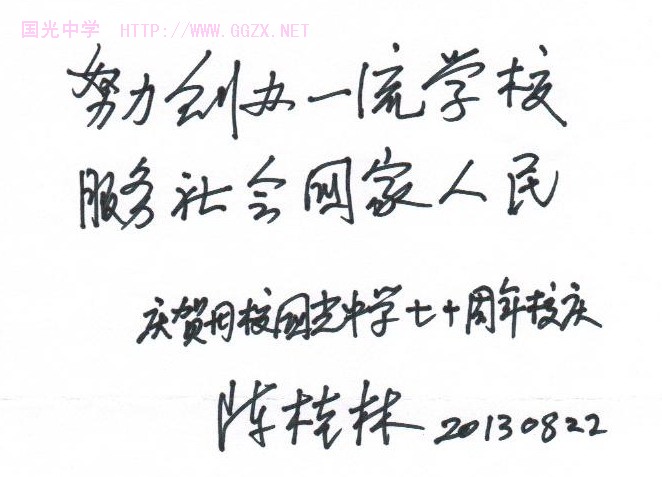 国光中学 HTTP://WWW.GGZX.NET
努力创办一流学校
服务社会国家人民
庆贺母校国光中学七十周年校庆
陈桂林 20130822